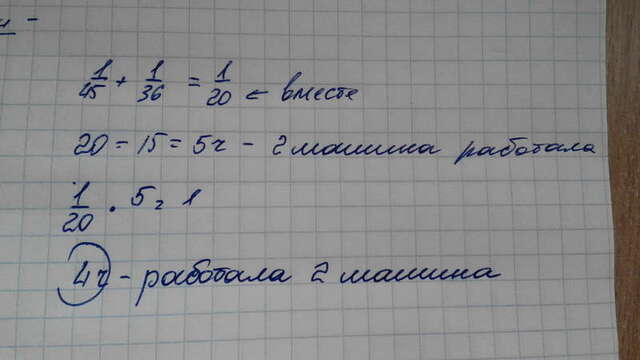 1/45 + 1/36 = 1/20 ← вместе
20 - 15 = 5ч - 2 машина работала
1/20 · 5 = 1
4ч - работала 2 машина